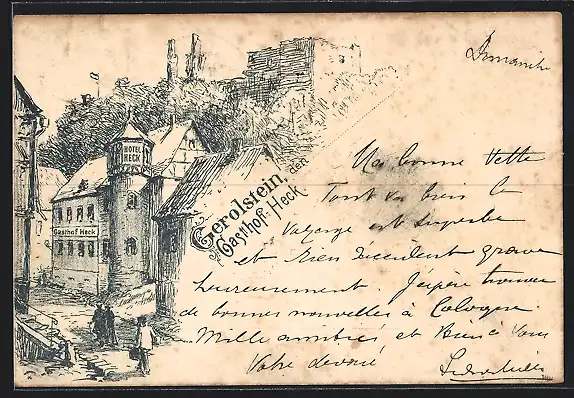 HOTEL
HECK
Gasthof Heck
Gerolstein, den
Gasthof Heck
Dimanche
Ma bonne Yette
Tout va bien le
voyage est superbe
et rien d'accident grave
heureusement. J'espère trouver
de bonnes nouvelles à Cologne.
Mille amitiés et bien à vous
Votre dévoué